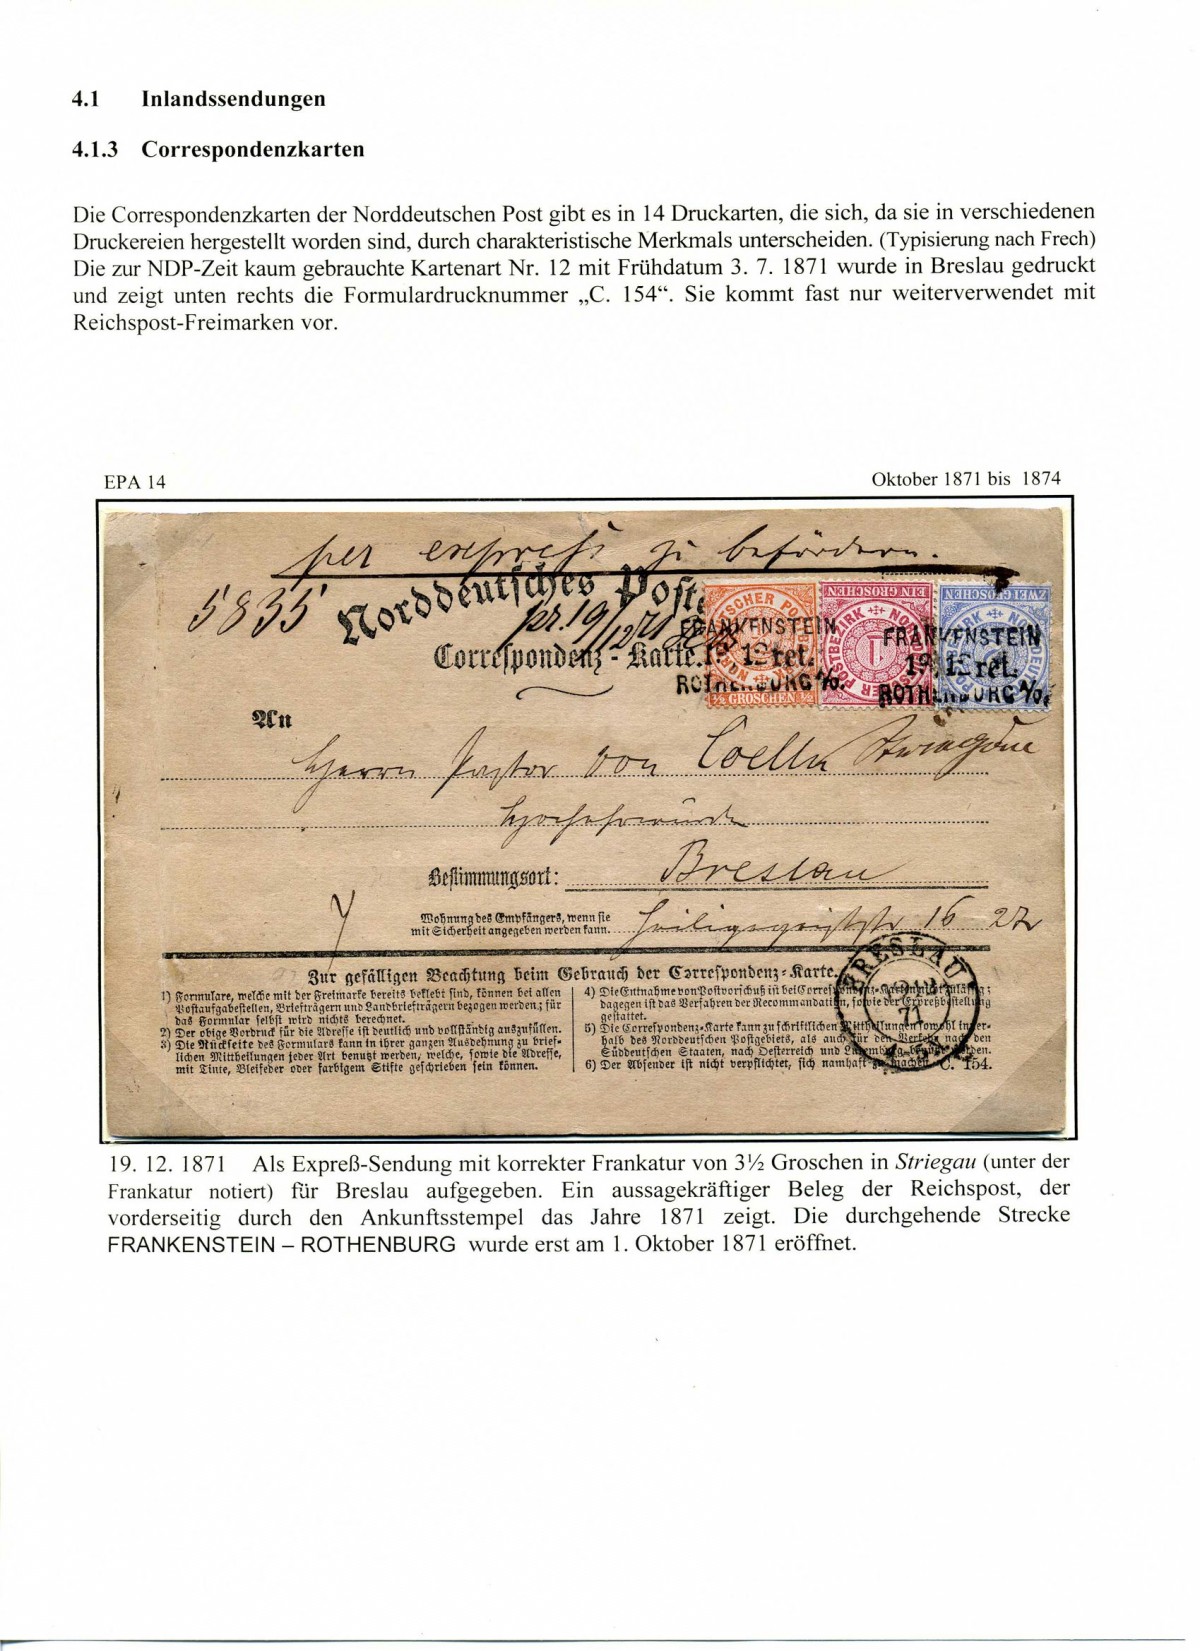 4.1 Inlandssendungen
4.1.3 Correspondenzkarten
Die Correspondenzkarten der Norddeutschen Post gibt es in 14 Druckarten, die sich, da sie in verschiedenen
Druckereien hergestellt worden sind, durch charakteristische Merkmals unterscheiden. (Typisierung nach Frech)
Die zur NDP-Zeit kaum gebrauchte Kartenart Nr. 12 mit Frühdatum 3. 7. 1871 wurde in Breslau gedruckt
und zeigt unten rechts die Formulardrucknummer „C. 154“. Sie kommt fast nur weiterverwendet mit
Reichspost-Freimarken vor.
EPA 14 Oktober 1871 bis 1874
per express zu befördern.
5835
Norddeutsches Post
pr. 19/12 71
Correspondenz-Karte.
FRANKENSTEIN
12 ret.
ROTHENBURG A/O.
½ GROSCHEN ½
EIN GROSCHEN
1
ZWEI GROSCHEN
2
FRANKENSTEIN
19 12 ret.
ROTHENBURG A/O.
An
Herrn Pastor von Coelln Striegau
Hochehrwürden
Bestimmungsort: Breslau
Wohnung des Empfängers, wenn sie
mit Sicherheit angegeben werden kann. Heiligegeiststr 16
BRESLAU
71
Zur gefälligen Beachtung beim Gebrauch der Correspondenz-Karte.
1) Formulare, welche mit der Freimarke bereits beklebt sind, können bei allen
Postaufgabestellen, Briefträgern und Landbriefträgern bezogen werden; für
das Formular selbst wird nichts berechnet.
2) Der obige Vordruck für die Adresse ist deutlich und vollständig auszufüllen.
3) Die Rückseite des Formulars kann in ihrer ganzen Ausdehnung zu brief-
lichen Mittheilungen jeder Art benutzt werden, welche, sowie die Adresse,
mit Tinte, Bleifeder oder farbigem Stifte geschrieben sein können.
4) Die Entnahme von Postvorschuß ist bei Correspondenz-Karten nicht zulässig;
dagegen ist das Verfahren der Recommandation, sowie der Expreßbestellung
gestattet.
5) Die Correspondenz-Karte kann zu schriftlichen Mittheilungen sowohl inner-
halb des Norddeutschen Postgebiets, als auch für den Verkehr nach den
Süddeutschen Staaten, nach Oesterreich und Luxemburg benutzt werden.
6) Der Absender ist nicht verpflichtet, sich namhaft zu machen.
C. 154.
19. 12. 1871 Als Expreß-Sendung mit korrekter Frankatur von 3½ Groschen in Striegau (unter der
Frankatur notiert) für Breslau aufgegeben. Ein aussagekräftiger Beleg der Reichspost, der
vorderseitig durch den Ankunftsstempel das Jahre 1871 zeigt. Die durchgehende Strecke
FRANKENSTEIN – ROTHENBURG wurde erst am 1. Oktober 1871 eröffnet.